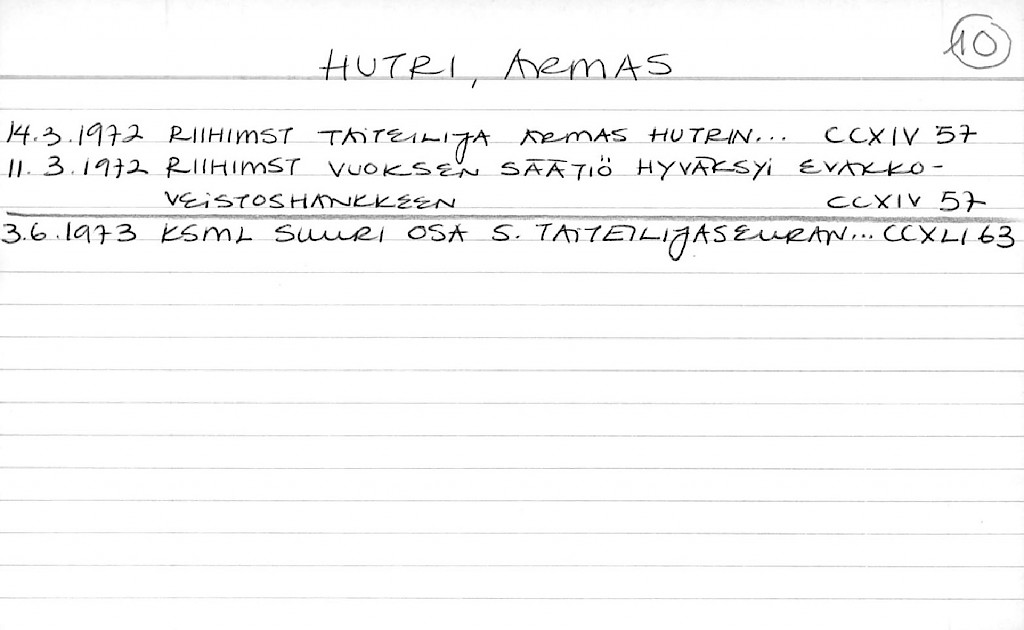 10
HUTRI, ARMAS
14.3.1972 RIIHIMST TAITEILIJA ARMAS HUTRIN... CCXIV 57
11.3.1972 RIIHIMST VUOKSEN SÄÄTIÖ HYVÄKSYI EVAKKO-
VEISTOSHANKKEEN CCXIV 57
3.6.1973 KSML SUURI OSA S. TAITEILIJASEURAN... CCXLI 63